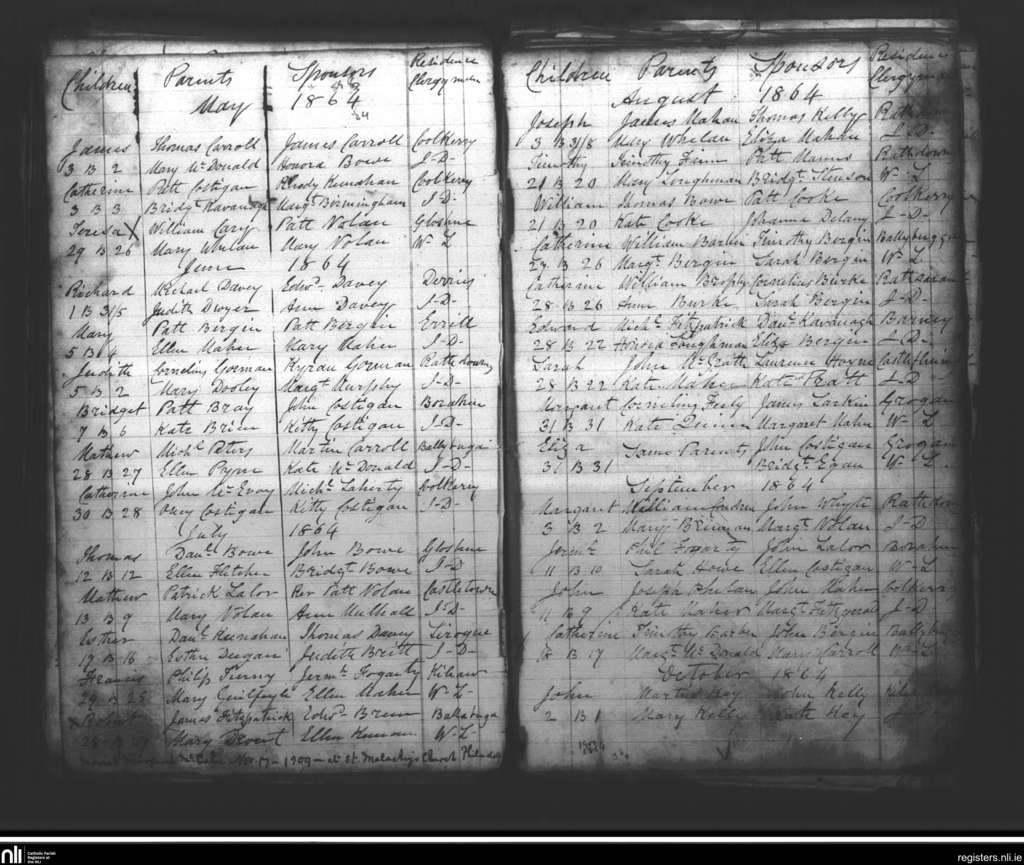 Children Parents Sponsors Residence Clergyman
May 1864
24
James Thomas Carroll James Carroll Coolkerry
3 B 2 Mary McDonald Honora Bowe J-D-
Catherine Patt Costigan Kunahan Coolkerry
3 B 3 Bridgt Kavanagh Margt Bermingham J-D-
Teresa William Cary Patt Nolan Gloshue
29 B 26 Mary Whelan Mary Nolan W-L
June 1864
Richard Michael Davey Edwd Davey Derries
1 B 31/5 Judith Dwyer Ann Davey J-D-
Mary Patt Bergin Patt Bergin Errill
5 B 4 Ellen Maher Mary Maher J-D-
Judith Cornelius Gorman Kyran Gorman Rathdowny
5 B 2 Mary Dooley Margt Murphy J-D-
Bridget Patt Bray John Costigan Borahin
7 B 6 Kate Brien Kitty Costigan J-D-
Mathew Michl Peters Martin Carroll
28 B 27 Ellen Pyne Kate McDonald J-D-
Catherine John McEvoy Michl Laherty Coolkerry
30 B 28 Costigan Kitty Costigan J-D-
July 1864
Thomas Danl Bowe John Bowe Gloshue
12 B 12 Ellen Fletcher Bridgt Bowe J-D
Mathew Patrick Lalor Ker Patt Nolan Castletown
13 B 9 Mary Nolan Ann Mulhall J-D-
Esther Danl Kunahan Thomas Davey
19 B 18 Esther Deegan Judith Britt J-D-
Francis Philip Tierny Jermh Fogarty Kilbraw
29 B 25 Mary Guilfoyle Ellen Maher W-L-
Robert James Fitzpatrick Edwd Breen Ballybuga
Mary Ellen W-L-
Nov. 17 - 1909 - at St. Malachy's Church Philadel
Children Parents Sponsors Residence Clergyman
August 1864
Joseph James Mahan Thomas Kelly
3 B 31/8 Mary Whelan Eliza Mahan J-D-
Timothy Timothy Patt Rathdown
21 B 20 Mary Loughman Bridgt W-L
William Thomas Bowe Patt Cooke Coolkerry
21 B 20 Kate Cooke Johanna Delany J-D-
Catherine William Barber Timothy Bergin
27 B 26 Margt Bergin Sarah Bergin W-L
Catherine William Brophy Cornelius Burke Rathsaran
28 B 26 Anne Burke Sarah Bergin J-D-
Edward Michl Fitzpatrick Danl Kavanagh Barney
28 B 22 Honora Loughman Eliza Bergin J-D-
Sarah John McGrath Laurence
28 B 22 Kate Maher Kate Pratt J-D
Margaret Cornelius Feely James Larkin Grogan
31 B 31 Kate Quinn Margaret Maher W-L
Eliza Same Parents John Costigan Grogan
31 B 31 Bridgt Egan W-L
September 1864
Margaret William Condren John Whyte Rathdow
3 B 2 Mary Brennan Margt Nolan J-D
Jermh Phil Fogarty John Lalor Borahin
11 B 10 Sarah Howe Ellen Costigan W-L
John Joseph Phelan John Maher Coolkerry
11 B 9 Kate Maher Margt Fitzgerald J-D
Catherine Timothy Barber John Bergin
18 B 17 Margt McDonald Mary Carroll W-L
October 1864
John Martin Hoy John Kelly
2 B 1 Mary Kelly Kate Hoy
nli
Catholic Parish
Registers at
the NLI
registers.nli.ie